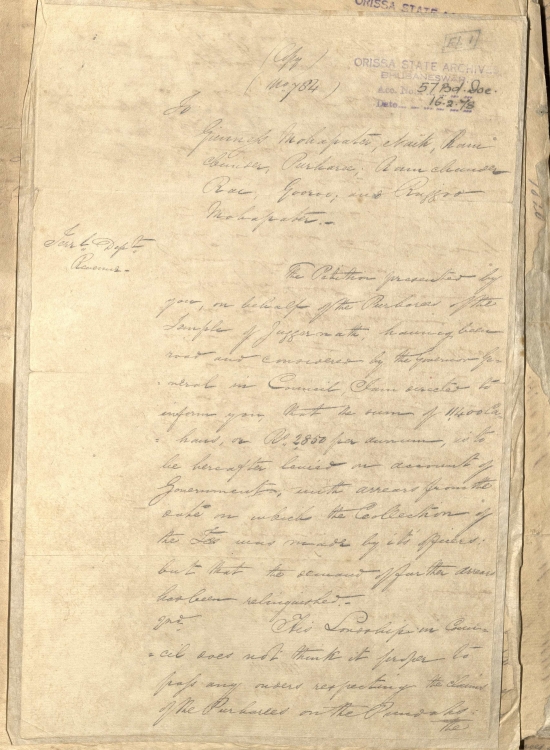 ORISSA STATE
ORISSA STATE ARCHIVES
BHUBANESWAR
Acc. No. 57 Bd. Doc.
Date 16-2-78
(Copy)
(No 784)
To
Mohapater, Naik, Ram
chunder, Purharee, Ramchunder
Rae, and
Mohapater.
Dept
Revenue.
The Petition presented by
you, on behalf of the Purharees of the
Temple of Juggernath, having been
read and considered by the Governor Ge-
neral in Council I am directed to
inform you that the sum of 11,400 Ca-
hans, or Rs. 2850 per annum, is to
be hereafter levied on account of
Government, with arrears from the
date on which the Collection of
the Tax was made by its officers;
but that the demand of further arrears
has been relinquished.
2nd. His Lordship in Coun-
cil does not think it proper to
pass any orders respecting the claims
of the Purharees on the Pundahs:
the